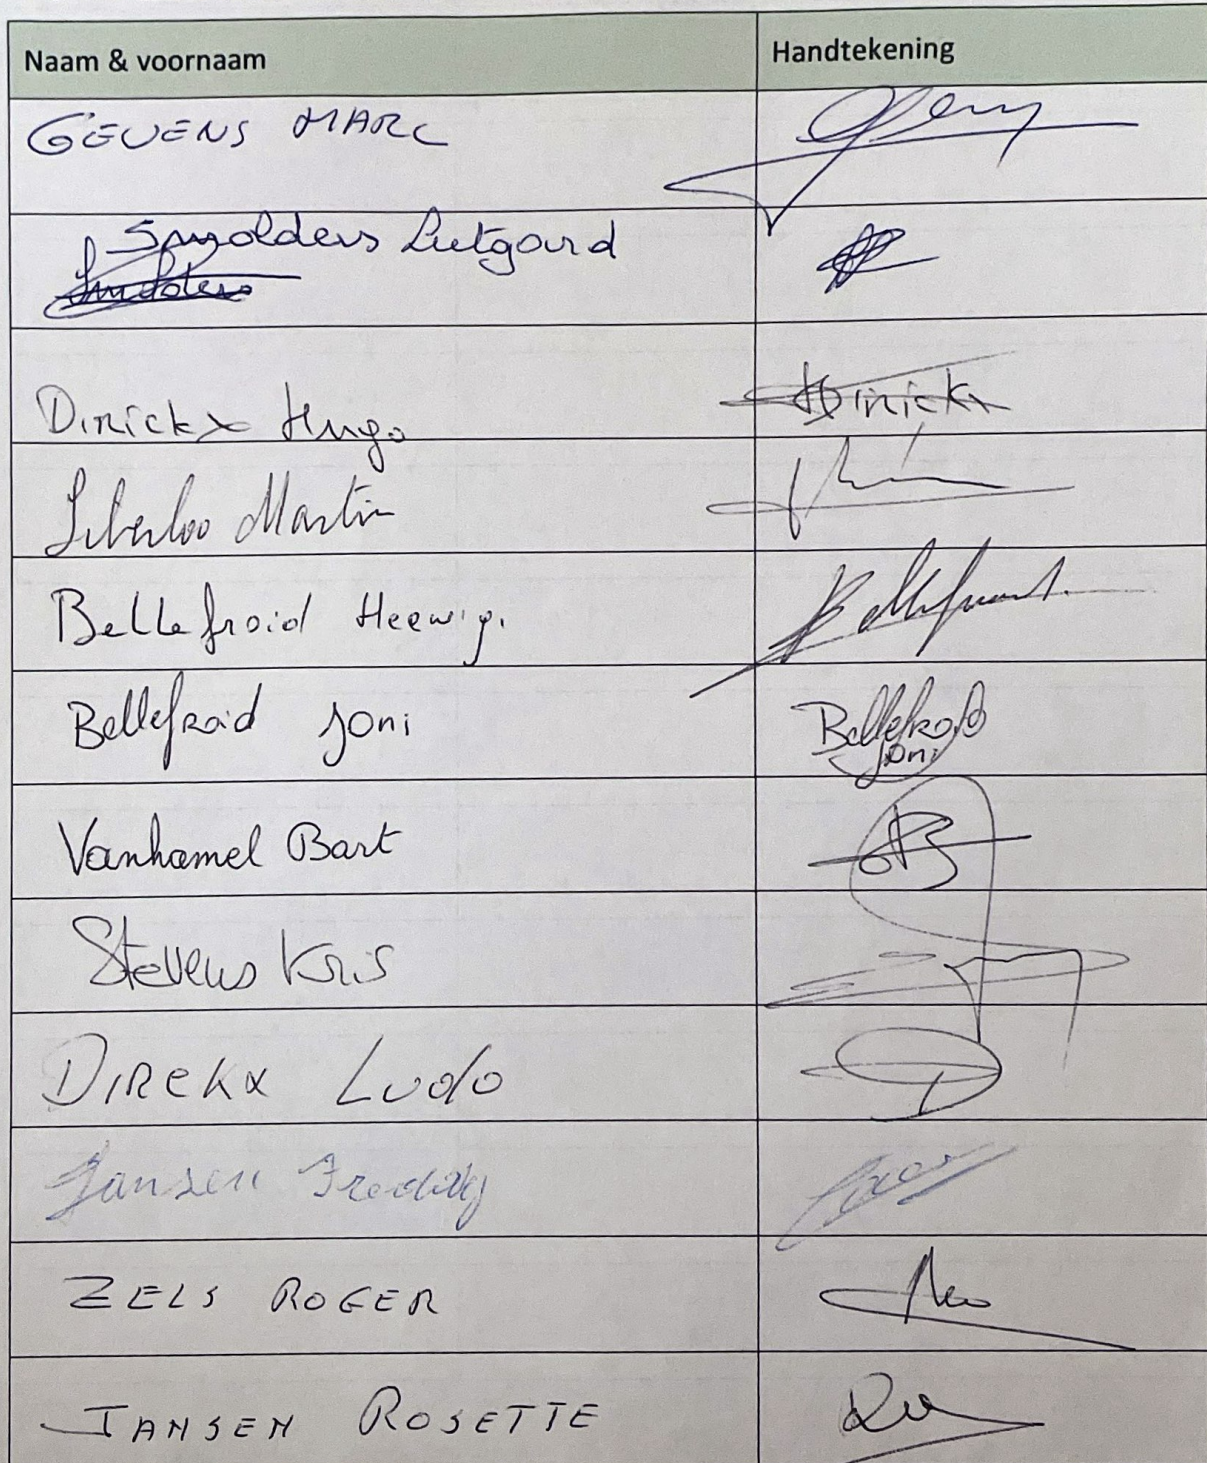 Naam & voornaam Handtekening
GEVENS MARC
Smolders Lutgard
Smolders
Dirickx Hugo Dirickx
Liberloo Martin
Bellefroid Herwig. Bellefroid
Bellefroid Joni Bellefroid
Joni
Vanhamel Bart
Stevens Kris
DIRckx Ludo
Jansen Freddy
ZELS ROGER
JANSEN ROSETTE